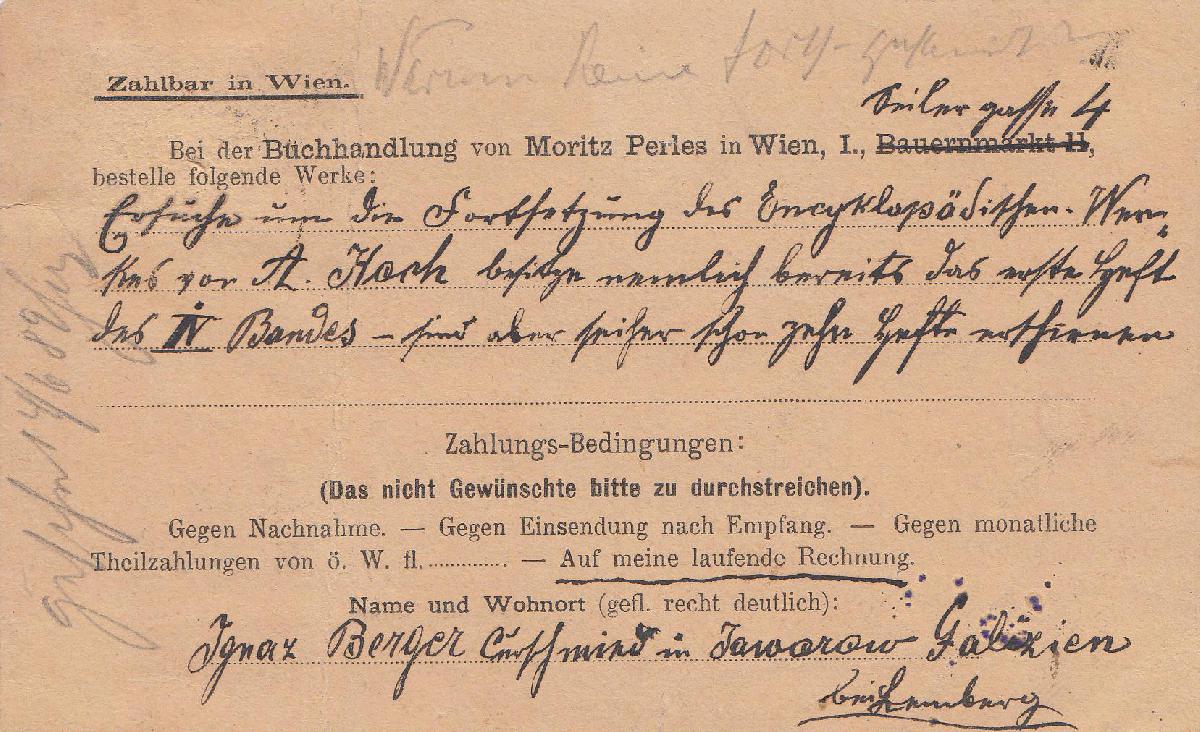 Zahlbar in Wien.
Warum keine Forts
Seilergasse 4
Bei der Buchhandlung von Moritz Perles in Wien, I., Bauernmarkt 11,
bestelle folgende Werke:
Ersuche um die Fortsetzung des Encyklopädischen Wer-
kes von A. Koch besitze nemlich bereits das erste Heft
des IV Bandes – sind aber seither schon zehn Hefte erschienen
Zahlungs-Bedingungen:
(Das nicht Gewünschte bitte zu durchstreichen).
Gegen Nachnahme. — Gegen Einsendung nach Empfang. — Gegen monatliche
Theilzahlungen von ö. W. fl............. — Auf meine laufende Rechnung.
Name und Wohnort (gefl. recht deutlich):
Ignaz Berger Curschmied in Jaworow Galizien
bei Lemberg
14/6 89